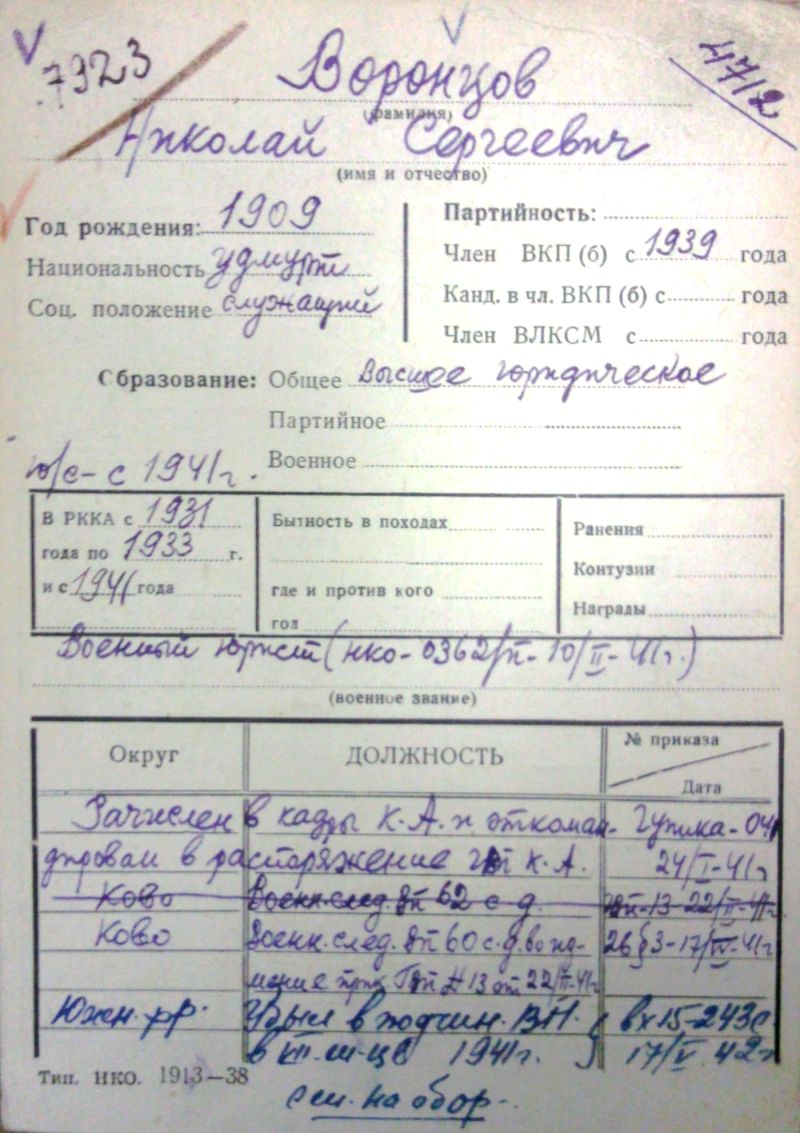 7923
4712
Воронцов
(фамилия)
Николай Сергеевич
(имя и отчество)
Год рождения: 1909
Национальность удмурт
Соц. положение служащий
Партийность:
Член ВКП (б) с 1939 года
Канд. в чл. ВКП (б) с года
Член ВЛКСМ с года
Образование: Общее Высшее юридическое
Партийное
Военное
ю/с - с 1941 г.
В РККА с 1931
года по 1933 г.
и с 1941 года
Бытность в походах
где и против кого
год
Ранения
Контузии
Награды
Военный юрист (НКО - 0362/п - 10/II - 41 г.)
(военное звание)
Округ
ДОЛЖНОСТЬ
№ приказа
Дата
Зачислен в кадры К.А. и откоман-
дирован в распоряжение К.А.
24/I-41 г
Ково Военн. след. вп 62 с д. 13-22/II-41 г.
Ково Военн. след. вп 60 с. д. во из- 26 § 3-17/IV-41 г
менение прик № 13 от 22/II-41 г
Южн. фр. Убыл в вх 15-243с
в 1941 г. 17/V.42 г
Тип. НКО. 1913—38
см. на обор.